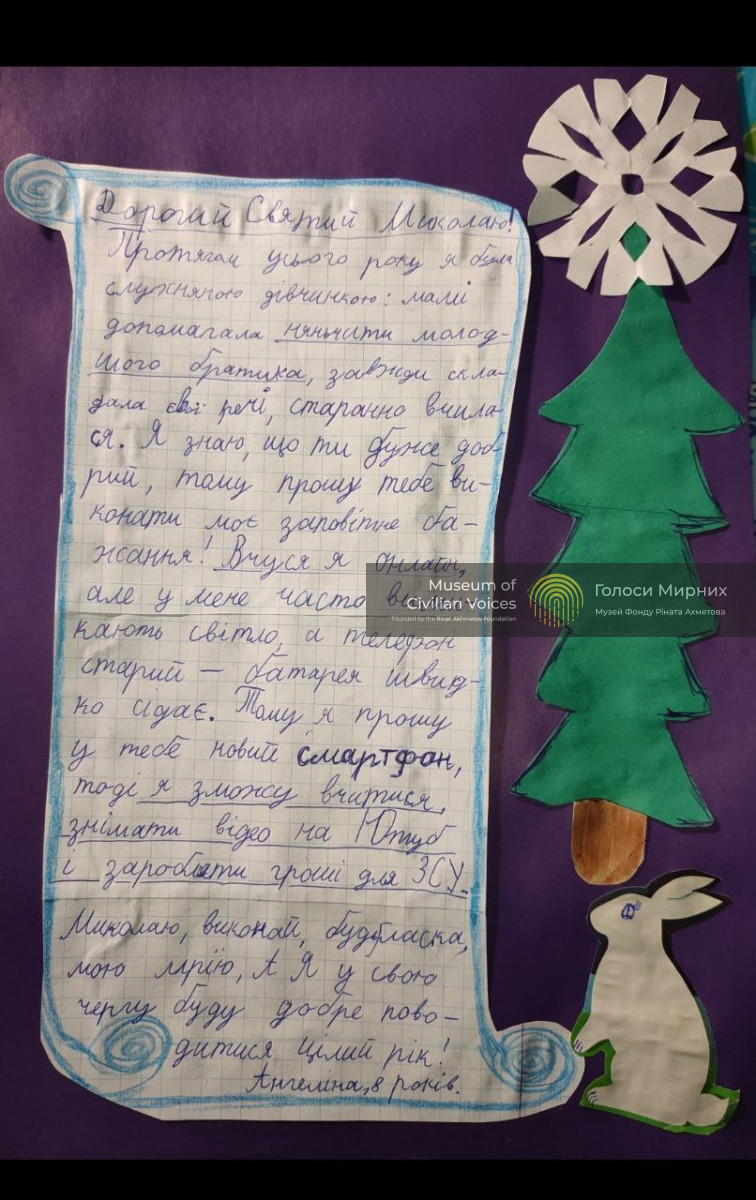 Дорогий Святий Миколаю!
Протягом усього року я була
слухняною дівчинкою: мамі
допомагала няньчити молод-
шого братика, завжди скла-
дала свої речі, старанно вчила-
ся. Я знаю, що ти дуже доб-
рий, тому прошу тебе ви-
конати моє заповітне ба-
жання! Вчуся я онлайн,
але у мене часто
кають світло, а телефон
старий — батарея швид-
ко сідає. Тому я прошу
у тебе новий смартфон,
тоді я зможу вчитися,
знімати відео на Ютуб
і заробляти гроші для ЗСУ.
Миколаю, виконай, будьласка,
мою мрію, А Я у свою
чергу буду добре пово-
дитися цілий рік!
Ангеліна, 8 років.
Museum of
Civilian Voices
Founded by the Rinat Akhmetov Foundation
Голоси Мирних
Музей Фонду Ріната Ахметова